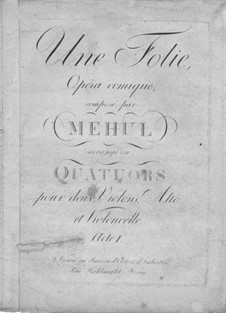 Une Folie,
Opéra comique,
composé par
MÉHUL
arrangé en
QUATUORS
pour deux Violons, Alto
et Violoncelle
Acte I